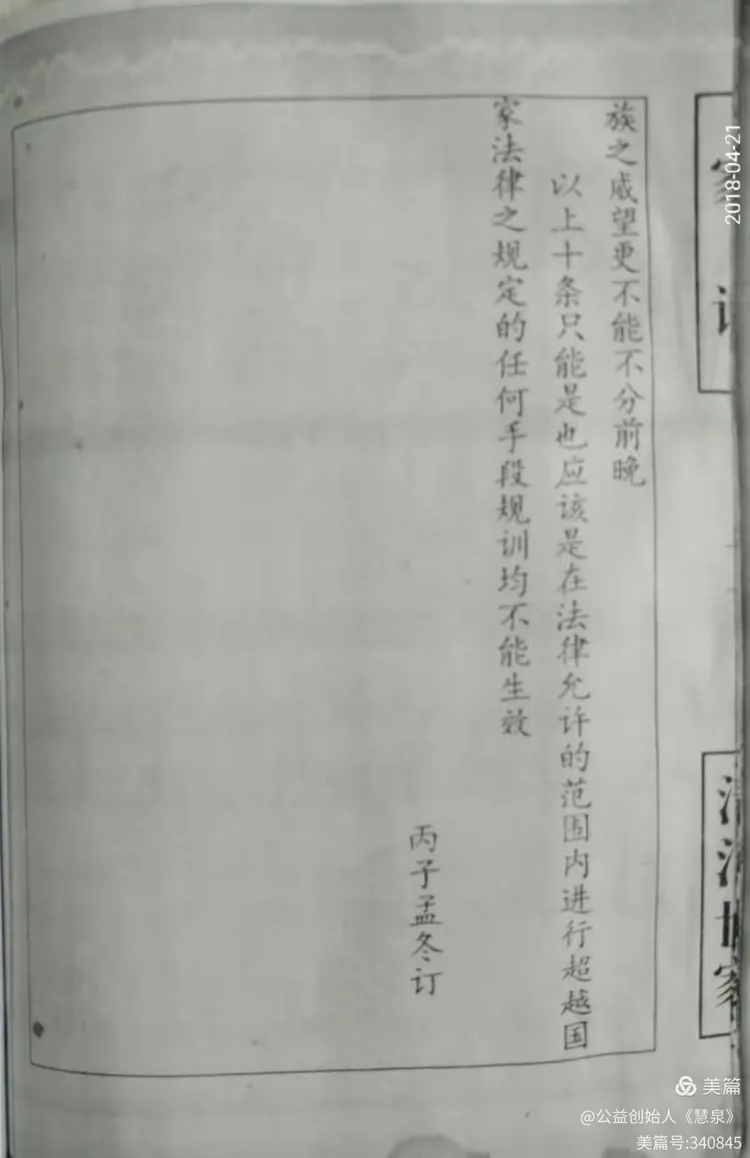 族之威望更不能不分前晚
以上十条只能是也应该是在法律允许的范围内进行超越国
家法律之规定的任何手段规训均不能生效
丙子孟冬订
2018-04-21
清河世家
美篇
@公益创始人《慧泉》
美篇号:340845